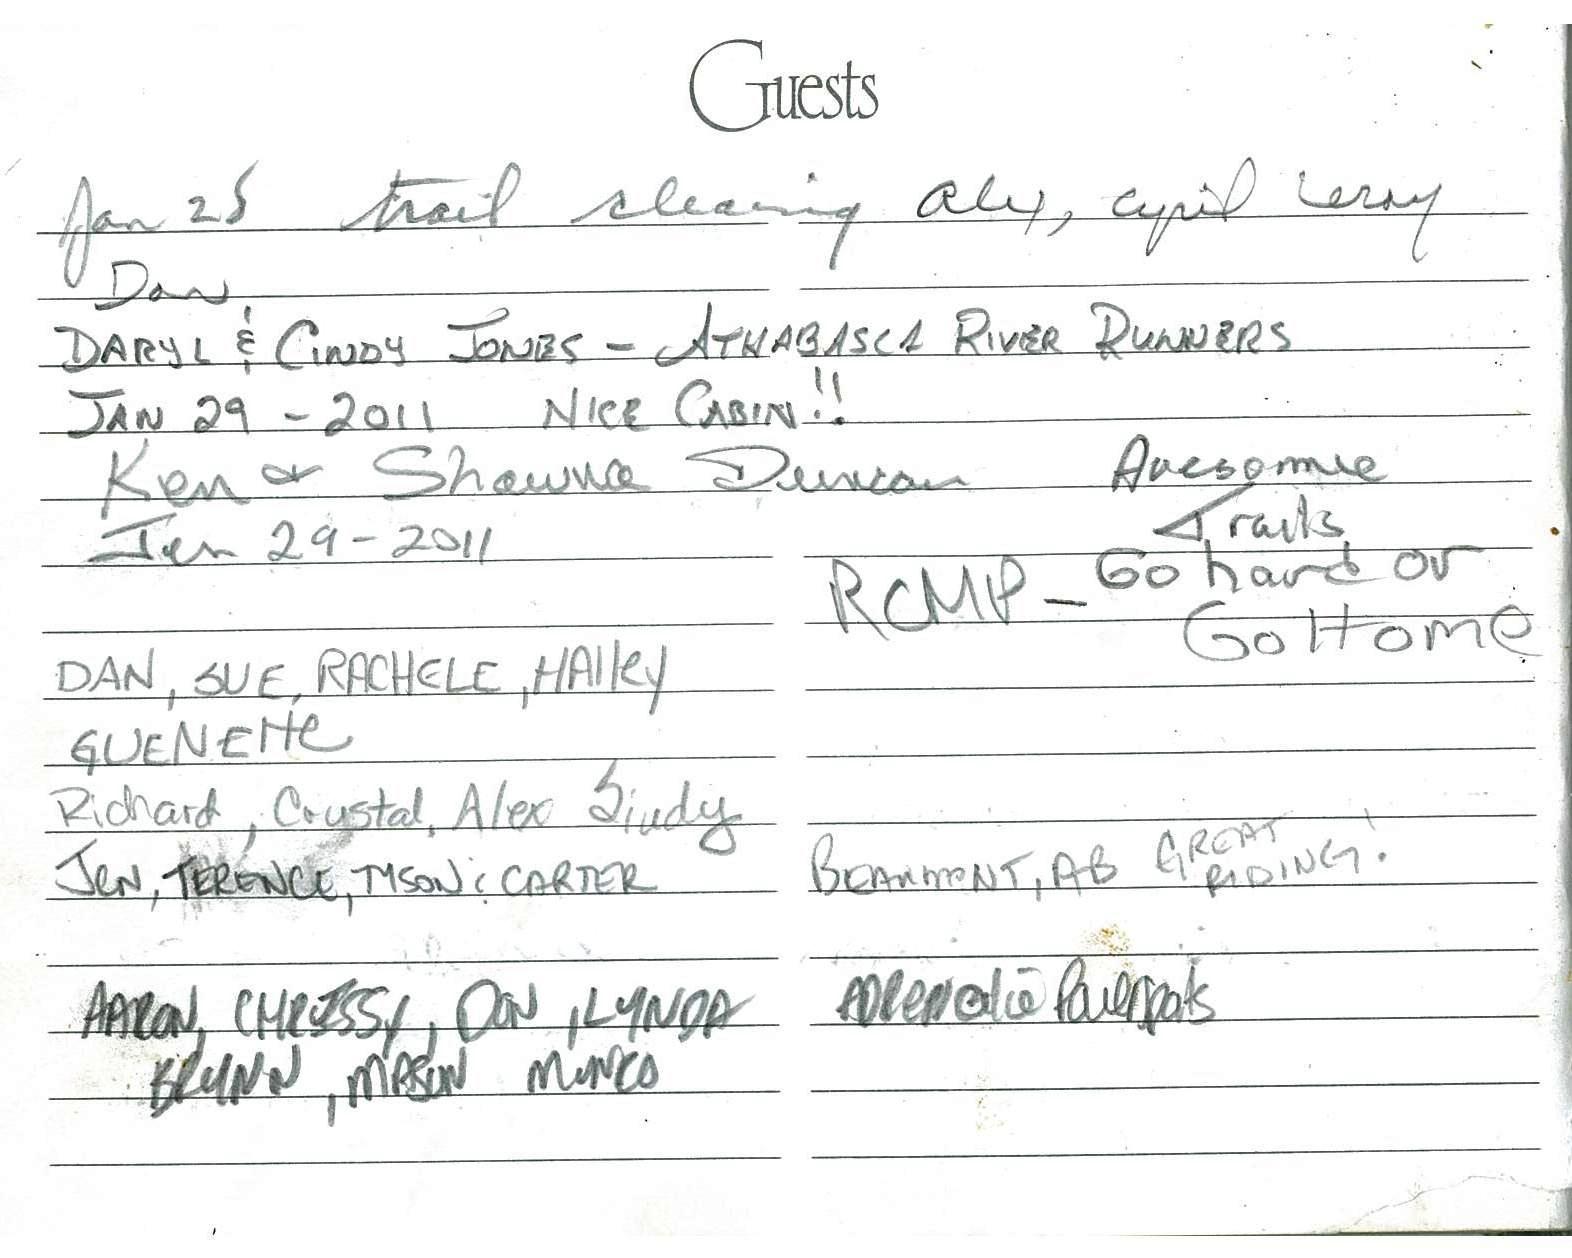 Guests
Jan 28 trail clearing Alex, Cyril Leroy
Dan
DARYL & CINDY JONES - ATHABASCA RIVER RUNNERS
JAN 29 - 2011 NICE CABIN!!
Ken & Shawna Duncan Awesome
Jan 29 - 2011 Trails
RCMP - Go hard or
Go Home
DAN, SUE, RACHELE, HAIley
GUENEtte
Richard, Crystal, Alex
JEN, TERENCE, TYSON & CARTER BEAUMONT, AB GREAT
RIDING!
AARON, CHRISSY, DON, LYNDA
BRYNN, MASON MUNRO